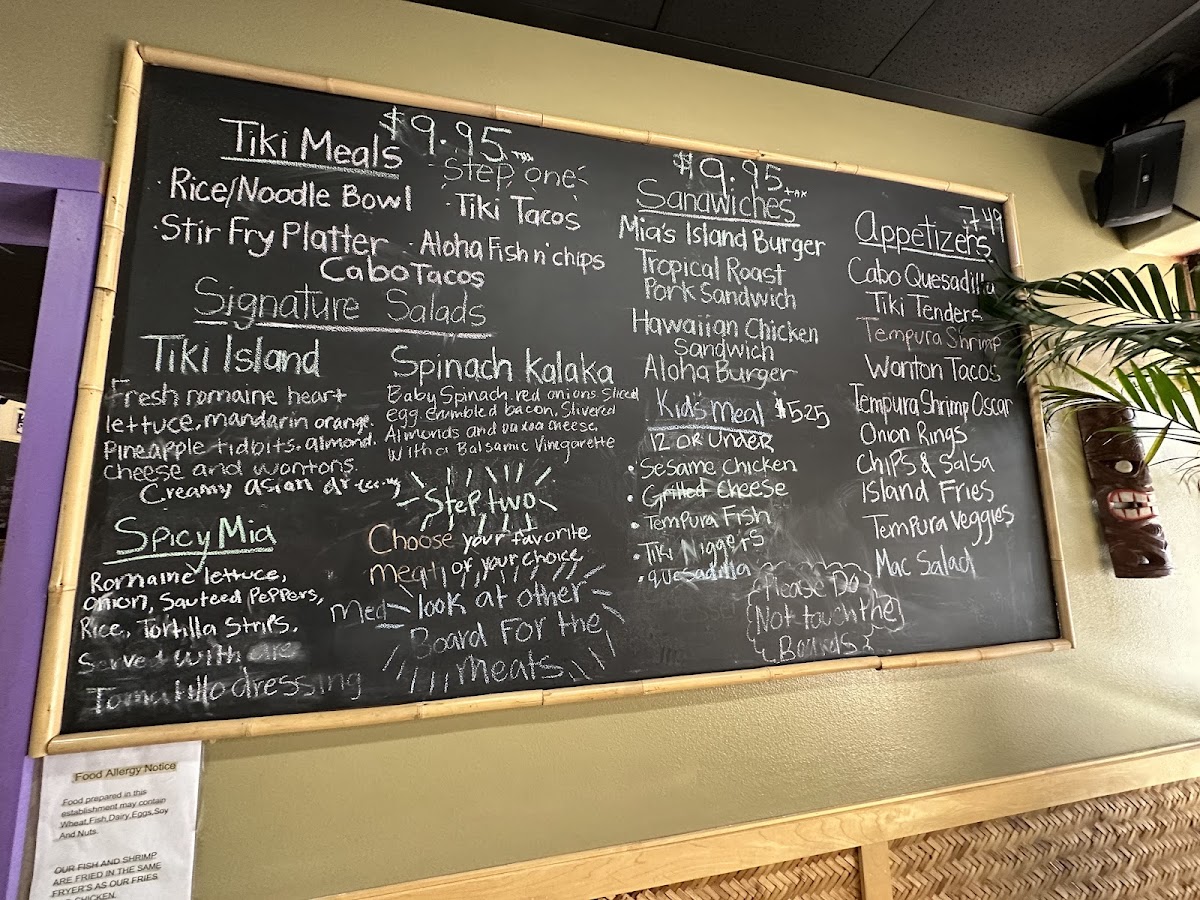 $9.95 tax
Tiki Meals
Step one
Rice/Noodle Bowl
· Tiki Tacos
· Stir Fry Platter
· Aloha Fish n' chips
Cabo Tacos
Signature Salads
Tiki Island
Fresh romaine heart
lettuce, mandarin orange.
Pineapple tidbits, almond.
cheese and wontons.
Creamy asian
Spinach Kalaka
Baby Spinach, red onions Sliced
egg, crumbled bacon, Slivered
Almonds and cheese,
With a Balsamic Vinegarette
Spicy Mia
Romaine lettuce,
onion, Sauteed Peppers,
Rice, Tortilla Strips,
Served with are
Tomatillo dressing
Step two
Choose your favorite
meat of your choice
look at other
Board For the
meats
$9.95 +tax
Sandwiches
Mia's Island Burger
Tropical Roast
Pork Sandwich
Hawaiian Chicken
Sandwich
Aloha Burger
Kid's Meal $5.25
12 OR UNDER
• Sesame Chicken
• Grilled Cheese
• Tempura Fish
• Tiki
• quesadilla
Please Do
Not touch the
Boards
7.49
Appetizers
Cabo Quesadilla
Tiki Tenders
Tempura Shrimp
Wonton Tacos
Tempura Shrimp Oscar
Onion Rings
Chips & Salsa
Island Fries
Tempura Veggies
Mac Salad
Food Allergy Notice
Food prepared in this
establishment may contain
Wheat,Fish,Dairy,Eggs,Soy
And Nuts.
OUR FISH AND SHRIMP
ARE FRIED IN THE SAME
FRYER'S AS OUR FRIES
CHICKEN.